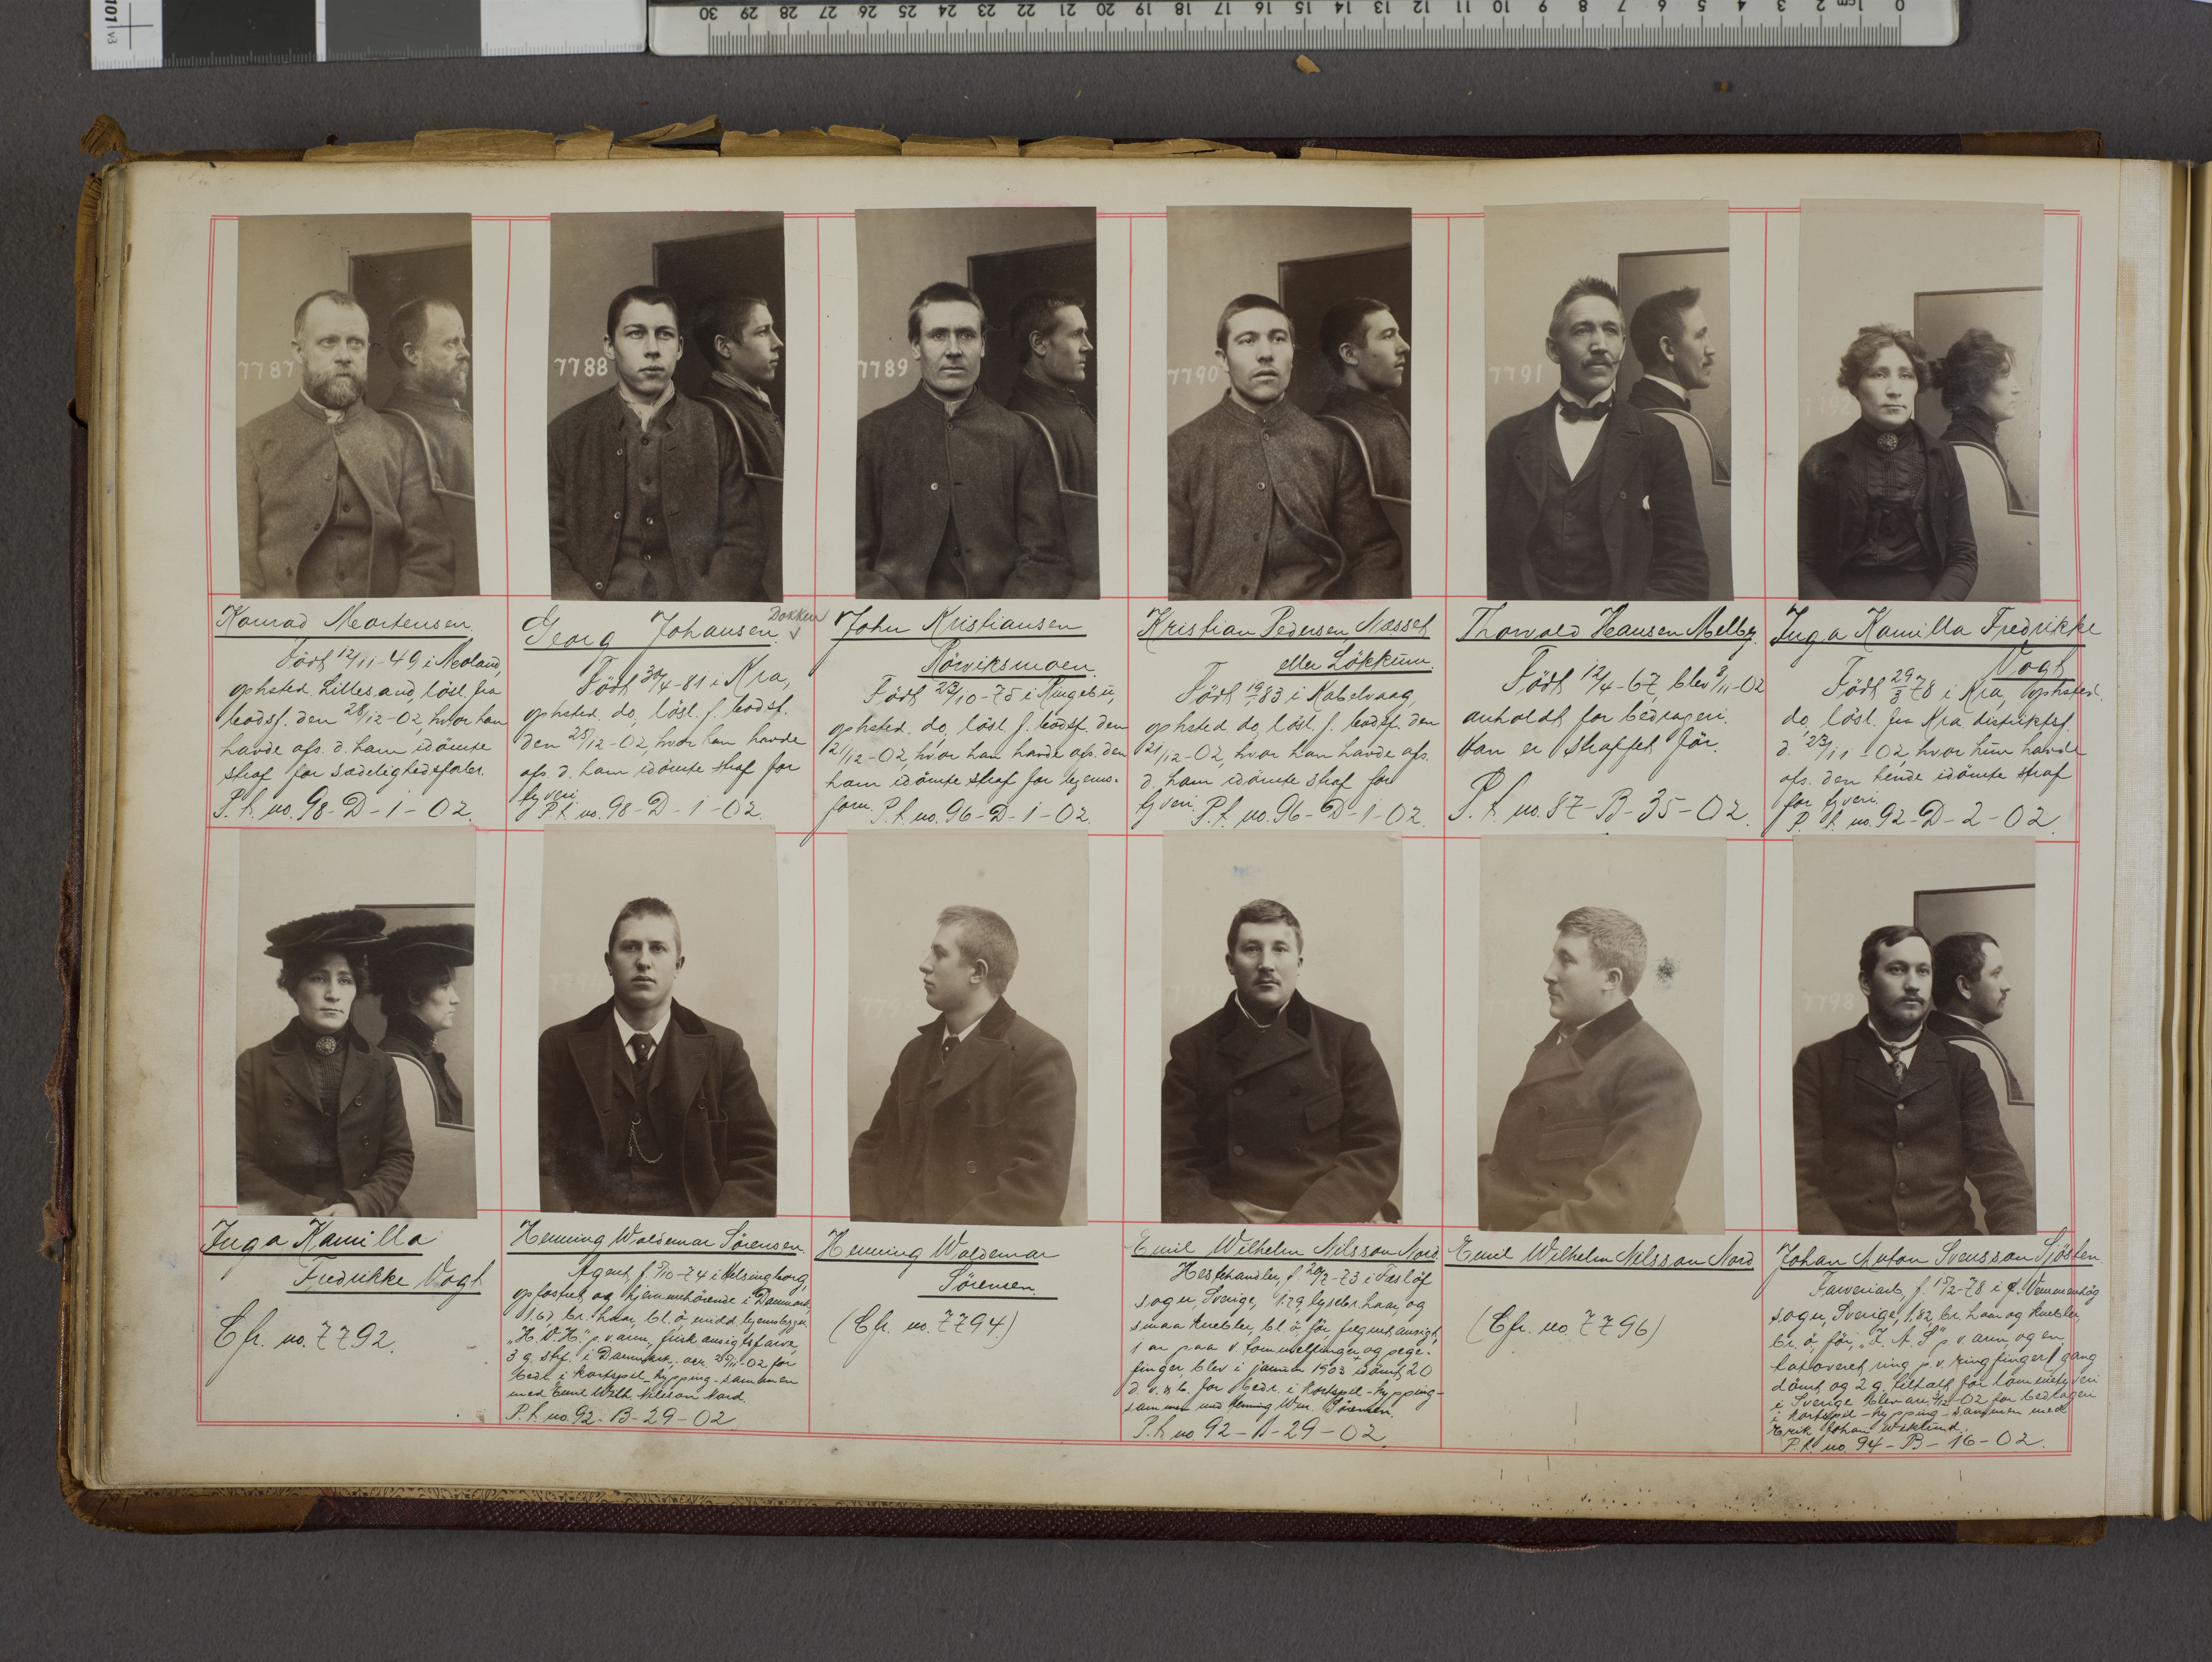 101 v3
30 29 28 27 26 25 24 23 22 21 20 19 18 17 16 15 14 13 12 11 10 9 8 7 6 5 4 3 2 1cm 0
7787
Konrad Mortensen
Födt 12/11-49 i Moland,
ophsted. Lillesand, lösl. fra
bodsf. den 28/12-02, hvor han
havde afs. d. ham idömte
straf for sædelighedsforbr.
P. k. no. 98-D-1-02.
7788
Georg Johansen.
Dokken
Födt 30/4-81 i Kra,
ophsted. do, lösl. f. bodsf.
den 28/12-02, hvor han havde
afs. d. ham idömte straf for
tyveri.
P. k. no. 98-D-1-02.
7789
John Kristiansen
Rörviksmoen.
Födt 23/10-75 i Ringebu,
ophsted. do, lösl. f. bodsf. den
21/12-02, hvor han havde afs. den
ham idömte straf for legems-
forn. P. k. no. 96-D-1-02.
7790
Kristian Pedersen Næsset
eller Lökkum.
Födt 19/ 83 i Kabelvaag,
ophsted. do, lösl. f. bodsf. den
21/12-02, hvor han havde afs.
d. ham idömte straf for
tyveri. P. k. no. 96-D-1-02.
7791
Thorvald Hansen Melby.
Födt 12/4-67, blev 8/11-02
anholdt for bedrageri.
Han er straffet för.
P. k. no. 87-B-35-02.
7792
Inga Kamilla Fredrikke
Vogt
Födt 29/3 78 i Kra, ophsted.
do, lösl. fra Kra distriktsf.
d. 23/11-02, hvor hun havde
afs. den hende idömte straf
for tyveri.
P. k. no. 92-D-2-02.
Inga Kamilla
Fredrikke Vogt
Cfr. no. 7792.
Henning Waldemar Sørensen.
Agent, f. 5/10-74 i Helsingborg,
opfostret og hjemmehörende i Danmark,
1.67, br. haar, bl. ö, midd. legemsbygn.
"H. V. H." p. v. arm, frisk ansigtsfarve,
3 g. strf. i Danmark, arr. 25/11-02 for
bedr. i kortspil-kypping-sammen
med Emil Wilh. Nilsson Nord.
P. k. no. 92-B-29-02.
7795
Henning Waldemar
Sörensen
(Cfr. no. 7794)
Emil Wilhelm Nilsson Nord.
Hestehandler, f. 20/2-73 i Tåslöf
sogn, Sverige, 1.79, lysebr. haar og
smaa knebler, bl. ö, för, fregnet ansigt,
1 ar paa v. tommelfinger og pege-
finger, blev i januar 1903 idömt 20
d. v. & b. for bedr. i kortspil-kypping-
sammen med Henning Wm. Sörensen.
P. k. no 92-B-29-02.
Emil Wilhelm Nilsson Nord
(Cfr. no. 7796)
7798
Johan Anton Svensson Sjösten.
Farveriarb., f. 15/2-78 i Ö. Vemmenhög
sogn, Sverige, 1.82, br. haar og knebler,
br. ö, för, "J. A. S" p. v. arm, og en
tatoveret ring p. v. ringfinger, 1 gang
dömt og 2 g. tiltalt for lommetyveri
i Sverige. Blev arr. 3/12-02 for bedrageri
i kortspil-kypping-sammen med
Erik Johan Wiklund.
P. k. no. 94-B-16-02.